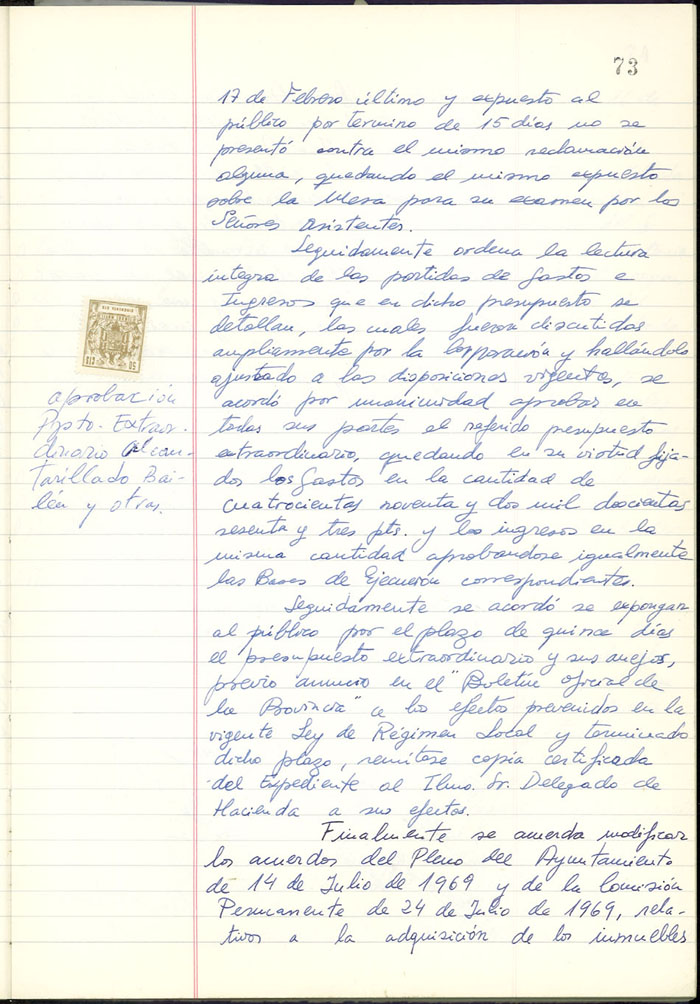 73
17 de Febrero último y expuesto al
público por termino de 15 días no se
presentó contra el mismo reclamación
alguna, quedando el mismo expuesto
sobre la Mesa para su examen por los
Señores asistentes.
Seguidamente ordena la lectura
integra de las partidas de Gastos e
Ingresos que en dicho presupuesto se
detallan, las cuales fueron discutidas
ampliamente por la Corporación y hallándolo
ajustado a las disposiciones vigentes, se
acordó por unanimidad aprobar en
todas sus partes el referido presupuesto
extraordinario, quedando en su virtud fija-
dos los Gastos en la cantidad de
cuatrocientas noventa y dos mil doscientas
sesenta y tres pts. y los ingresos en la
misma cantidad aprobandose igualmente
las Bases de Ejecución correspondientes.
Seguidamente se acordó se expongan
al público por el plazo de quince días
el presupuesto extraordinario y sus anejos,
previo anuncio en el "Boletín oficial de
la Provincia" a los efectos prevenidos en la
vigente Ley de Régimen Local y terminado
dicho plazo, remítase copia certificada
del Expediente al Ilmo. Sr. Delegado de
Hacienda a sus efectos.
Finalmente se acuerda modificar
los acuerdos del Pleno del Ayuntamiento
de 14 de Julio de 1969 y de la Comisión
Permanente de 24 de Julio de 1969, rela-
tivos a la adquisición de los inmuebles
aprobación
Ppsto. Extraor-
dinario Alcan-
tarillado Bai-
lén y otras.
50 CTS